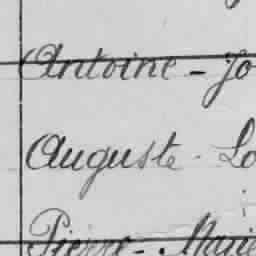 Antoine - Jo
Auguste - Lo
Pierre - Marie